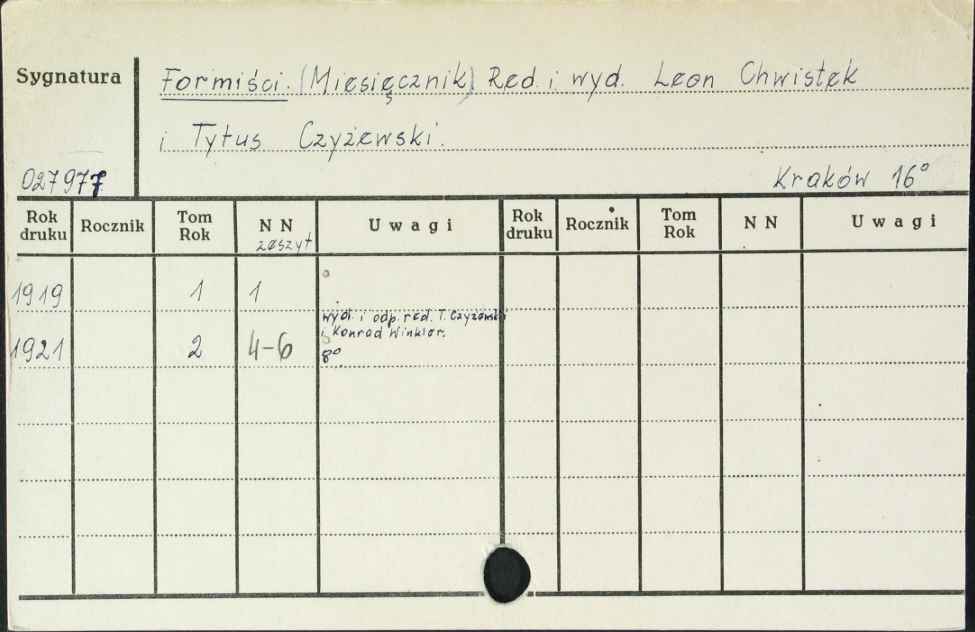 Sygnatura
Formiści. (Miesięcznik) Red. i wyd. Leon Chwistek
i Tytus Czyżewski.
027977
Kraków 16°
Rok druku Rocznik Tom Rok N N zeszyt Uwagi Rok druku Rocznik Tom Rok N N Uwagi
1919 1 1
wyd. i odp. red. T. Czyżewski
i Konrad Winkler.
1921 2 4-6 8°